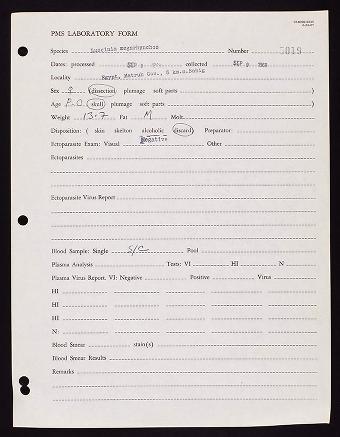 PMS LABORATORY FORM
Species Luscinia megarhynchos Number 5019
Dates: processed SEP 9 collected SEP 9
Locality Egypt, Matruh Gov., 8 km.s.
Sex ♀ (dissection plumage soft parts )
Age P.O (skull) plumage soft parts )
Weight 13.7 Fat M Molt
Disposition: ( skin skelton alcoholic discard) Preparator
Ectoparasite Exam: Visual Negative Other
Ectoparasites
Ectoparasite Virus Report
Blood Sample: Single S/C Pool
Plasma Analysis Tests: VI HI N
Plasma Virus Report. VI: Negative Positive Virus
HI
HI
HI
N:
Blood Smear stain(s)
Blood Smear Results
Remarks